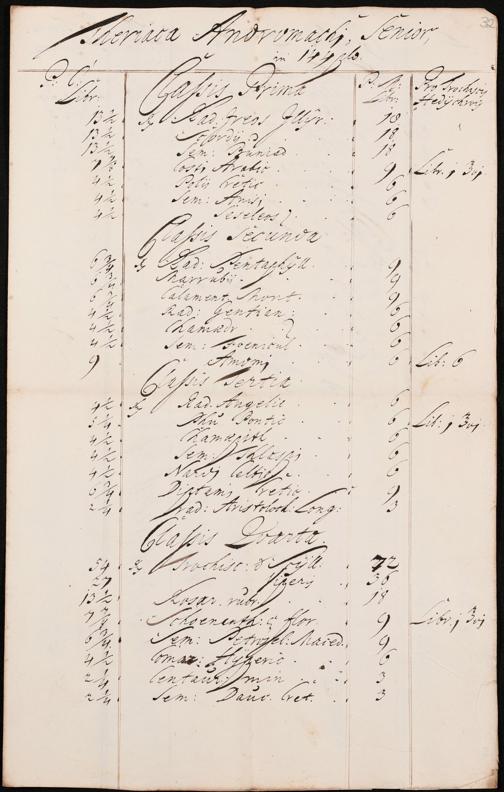 32
Theriaca Andromachi, Senior,
in 144 lb.
P. C. P. Pro Trochiscis
Libr. Classis Prima Libr. Hedychroi
13 ½ ℞ Rad. Ireos Illyr: 18
13 ½ Scordij 18
13 ½ Sem: Buniad. 18
Costi Arabic. 9 Libr. j ʒvj
4 ½ Polij Cretic 6
4 ½ Sem: Anisi 6
4 ½ Seseleos 6
Classis Secunda
6 ¾ ℞ Rad: Pentaphyll. 9
6 ¾ Marrubij 9
6 ¾ Calament. Mont. 9
4 ½ Rad: Gentian: 6
4 ½ Chamædr 6
4 ½ Sem: Foenicul 6
9 Amomi 6 Lib: 6
Classis Tertia
4 ½ ℞ Rad. Angelic 6
Phu Pontic 6 Lib: j ʒvj
4 ½ Chamæpith 6
4 ½ Sem: Thlaspi 6
4 ½ Nardi Celtic 6
6 ¾ Dictamj Cretic. 9
2 ¼ Rad: Aristoloch: Long: 3
Classis Quarta.
54 ℞ Trochisc: de Scyll. 72
27 Viperij 36
13 ½ Rosar. rubr 18
Schoenanth: c flor. 9 Libr: j ʒvj
6 ¾ Sem: Petrosel: Maced. 9
4 ½ Comar: Hyperic 6
2 ¼ Centaur: min 3
2 ¼ Sem: Dauc. Cret. 3